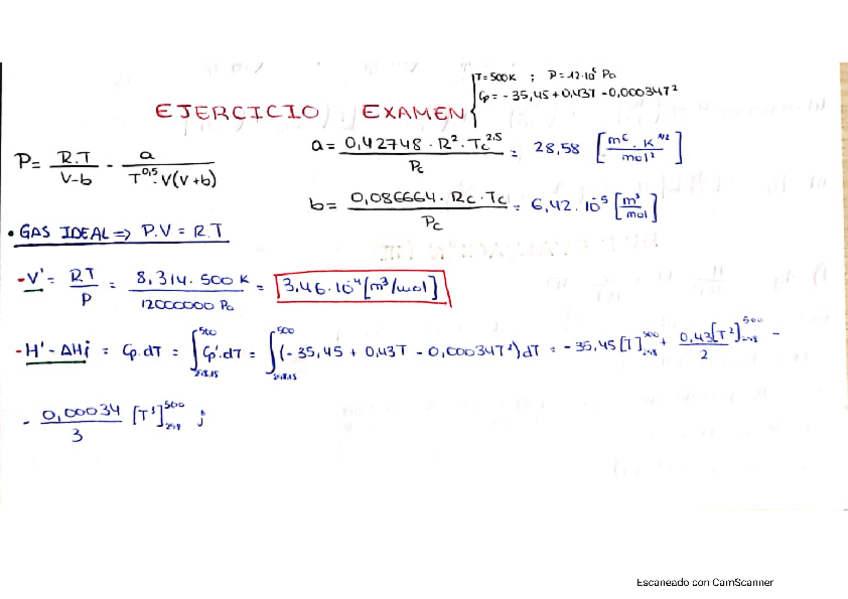 T=500K ; P=12·10⁶ Pa
Cp = -35,45 + 0,43T - 0,00034T²
EJERCICIO EXAMEN
P = R.T / V-b - a / T^0,5·V(V+b)
a = 0,42748 · R² · Tc^2,5 / Pc = 28,58 [m⁶ · K^1/2 / mol²]
b = 0,086664 · Rc · Tc / Pc = 6,42 · 10⁻⁵ [m³/mol]
• GAS IDEAL ⇒ P.V = R.T
- V' = R.T / P = 8,314 · 500 K / 12000000 Pa = 3,46 · 10⁻⁴ [m³/mol]
- H' - ΔHi = Cp.dT = ∫_298.15^500 Cp'.dT = ∫_298.15^500 (-35,45 + 0,43T - 0,00034T²)dT = -35,45 [T]_298^500 + 0,43[T²]_298^500 / 2 -
- 0,00034 / 3 [T³]_298^500 ;
Escaneado con CamScanner